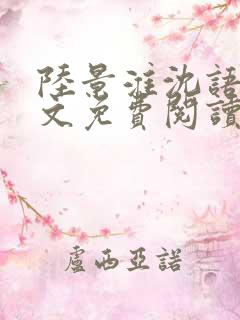 陸景淮沈語
文免費閱讀
盧西亞諾